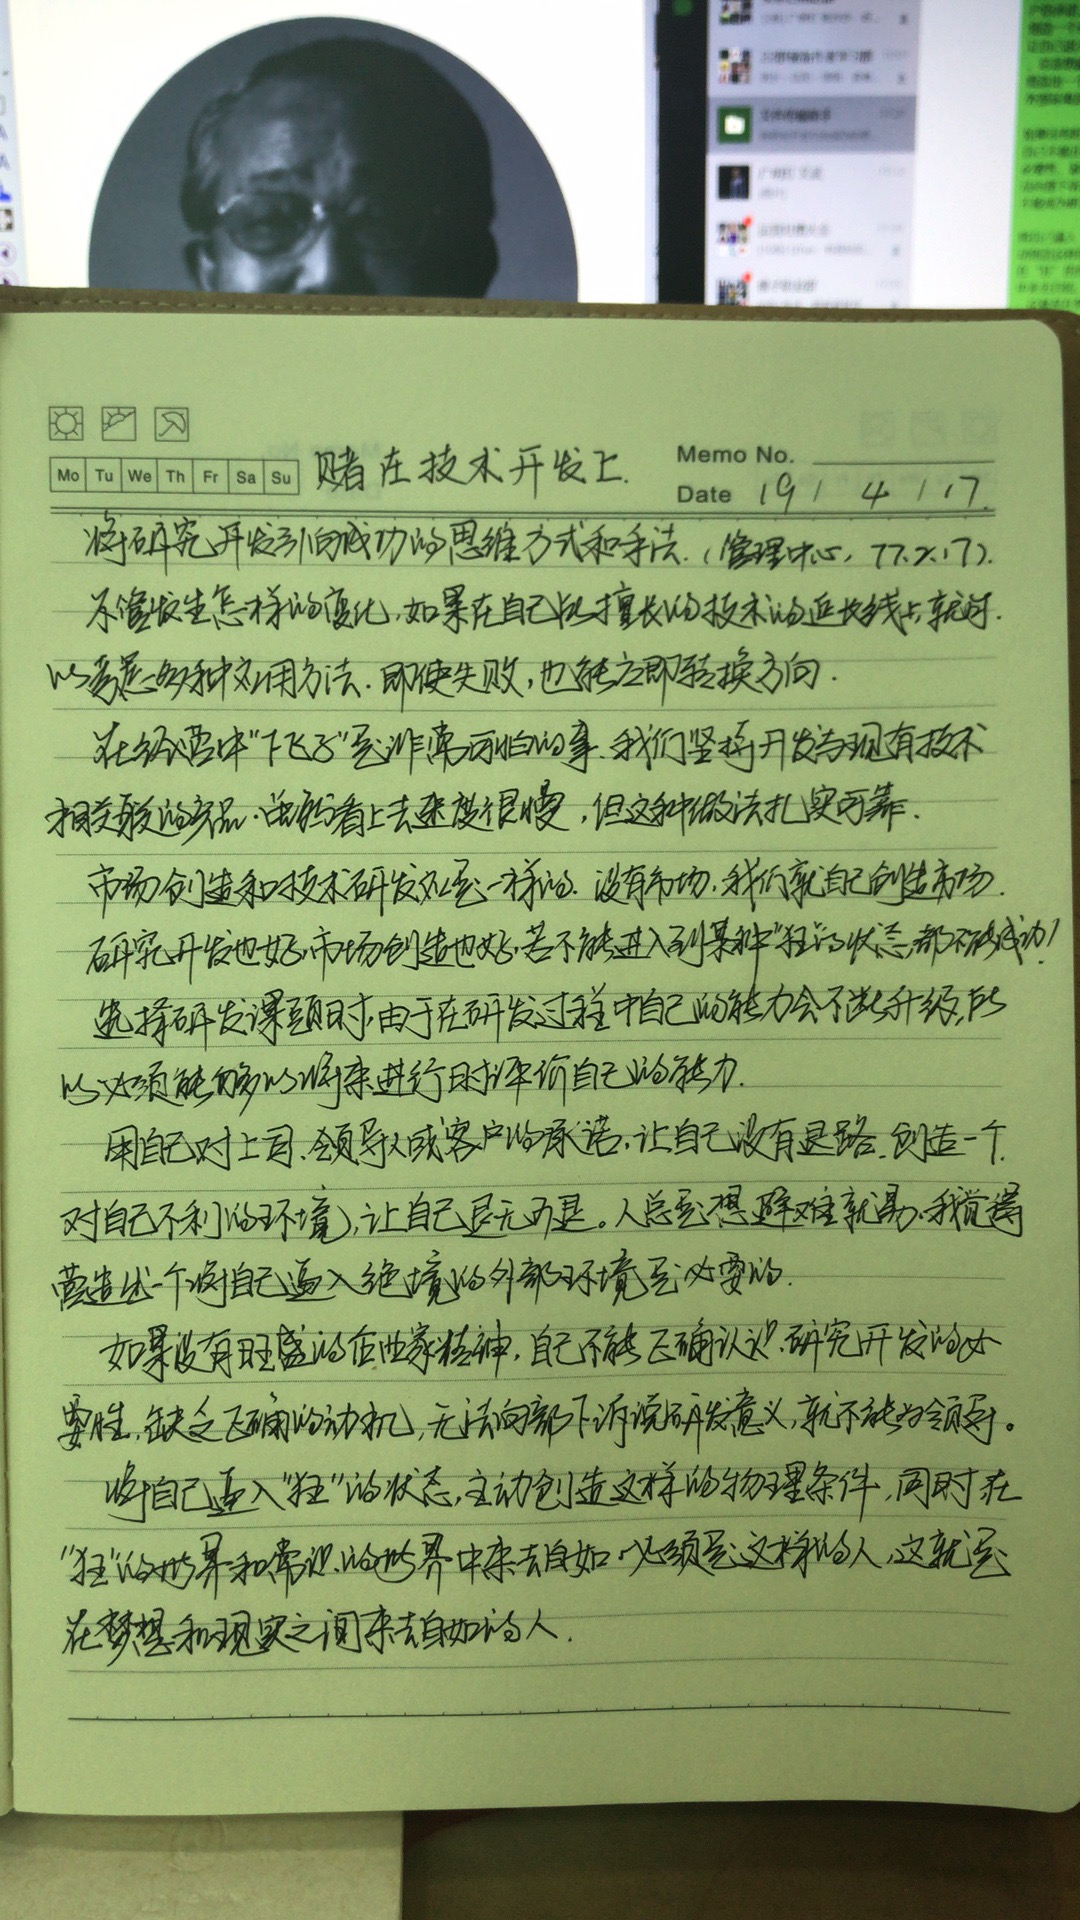 Mo Tu We Th Fr Sa Su
赌在技术开发上.
Memo No.
Date 19 / 4 / 17.
将研究开发引向成功的思维方式和手法.(管理中心, 77.%.17).
不管发生怎样的变化,如果在自己所擅长的技术的延长线上,就可.
以考虑多种应用方法.即使失败,也能立即转换方向.
在经营中"下飞子"是非常可怕的事.我们坚持开发与现有技术
相关联的产品.虽然看上去速度很慢,但这种做法扎实可靠.
市场创造和技术研发是一样的.没有市场,我们就自己创造市场.
研究开发也好,市场创造也好,若不能进入到某种"狂"的状态,都不能成功!
选择研发课题时,由于在研发过程中自己的能力会不断升级,所
以必须能够以将来进行时评价自己的能力.
用自己对上司、领导人或客户的承诺,让自己没有退路.创造一个
对自己不利的环境,让自己退无可退。人总是想避难就易,我觉得
营造出一个将自己逼入绝境的外部环境是必要的.
如果没有旺盛的企业家精神,自己不能正确认识研究开发的必
要性,缺乏正确的动机,无法向部下诉说研发意义,就不能当领导。
将自己逼入"狂"的状态,主动创造这样的物理条件,同时在
"狂"的世界和常识的世界中来去自如,必须是这样的人,这就是
在梦想和现实之间来去自如的人.